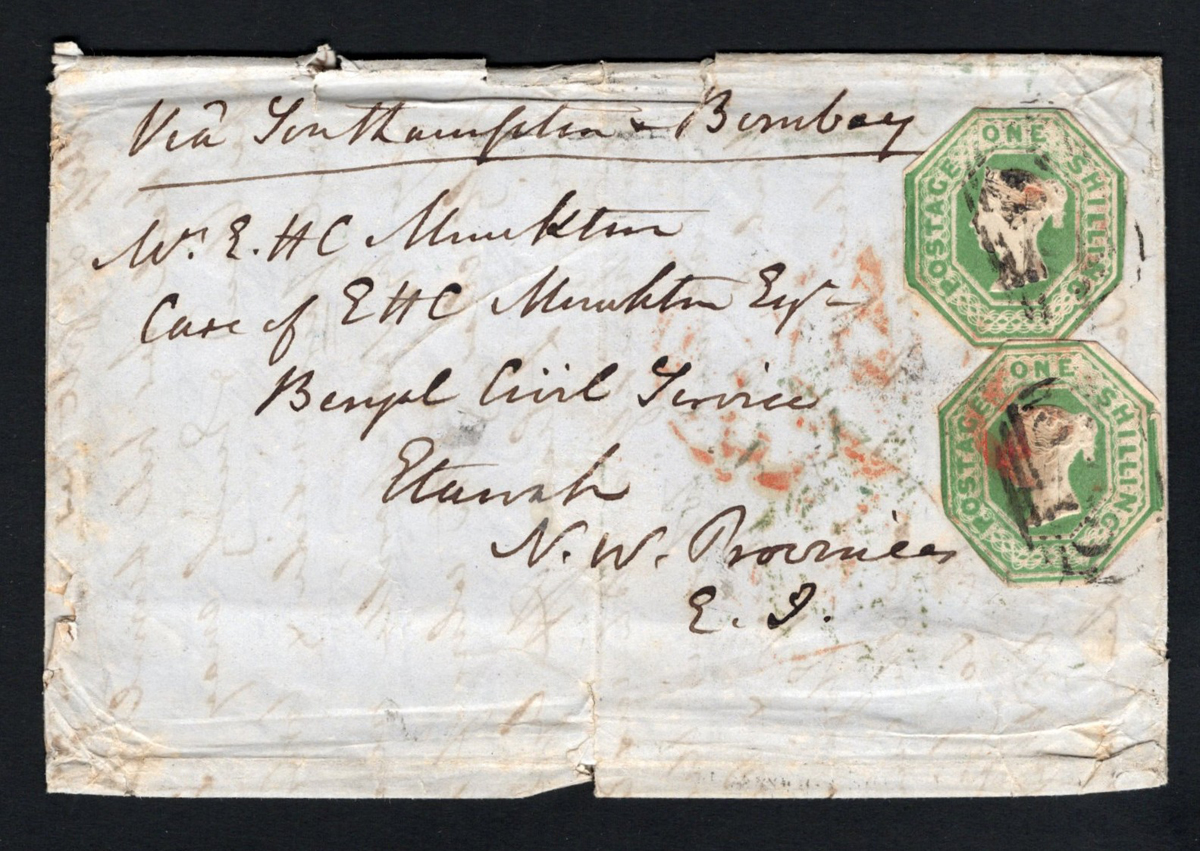 Via Southampton & Bombay
Mr. E. H C Monckton
Care of E H C Monckton Esqr
Bengal Civil Service
Etawah
N. W. Provinces
E. I.
POSTAGE ONE SHILLING
POSTAGE ONE SHILLING